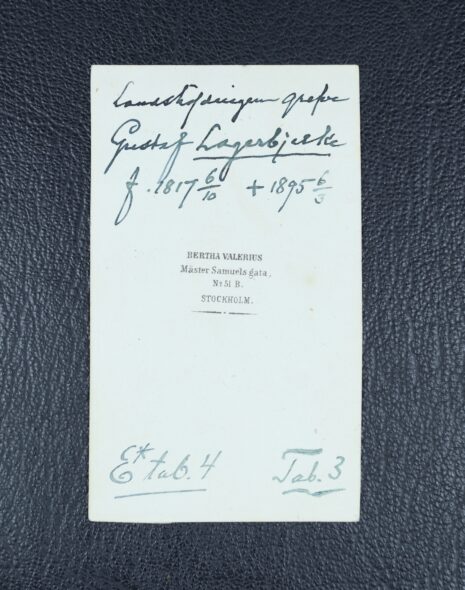 Landshöfdingen grefve
Gustaf Lagerbjelke
f. 1817 6/10 + 1895 6/3
BERTHA VALERIUS
Mäster Samuels gata,
No 51 B.
STOCKHOLM.
E* tab. 4 Tab. 3